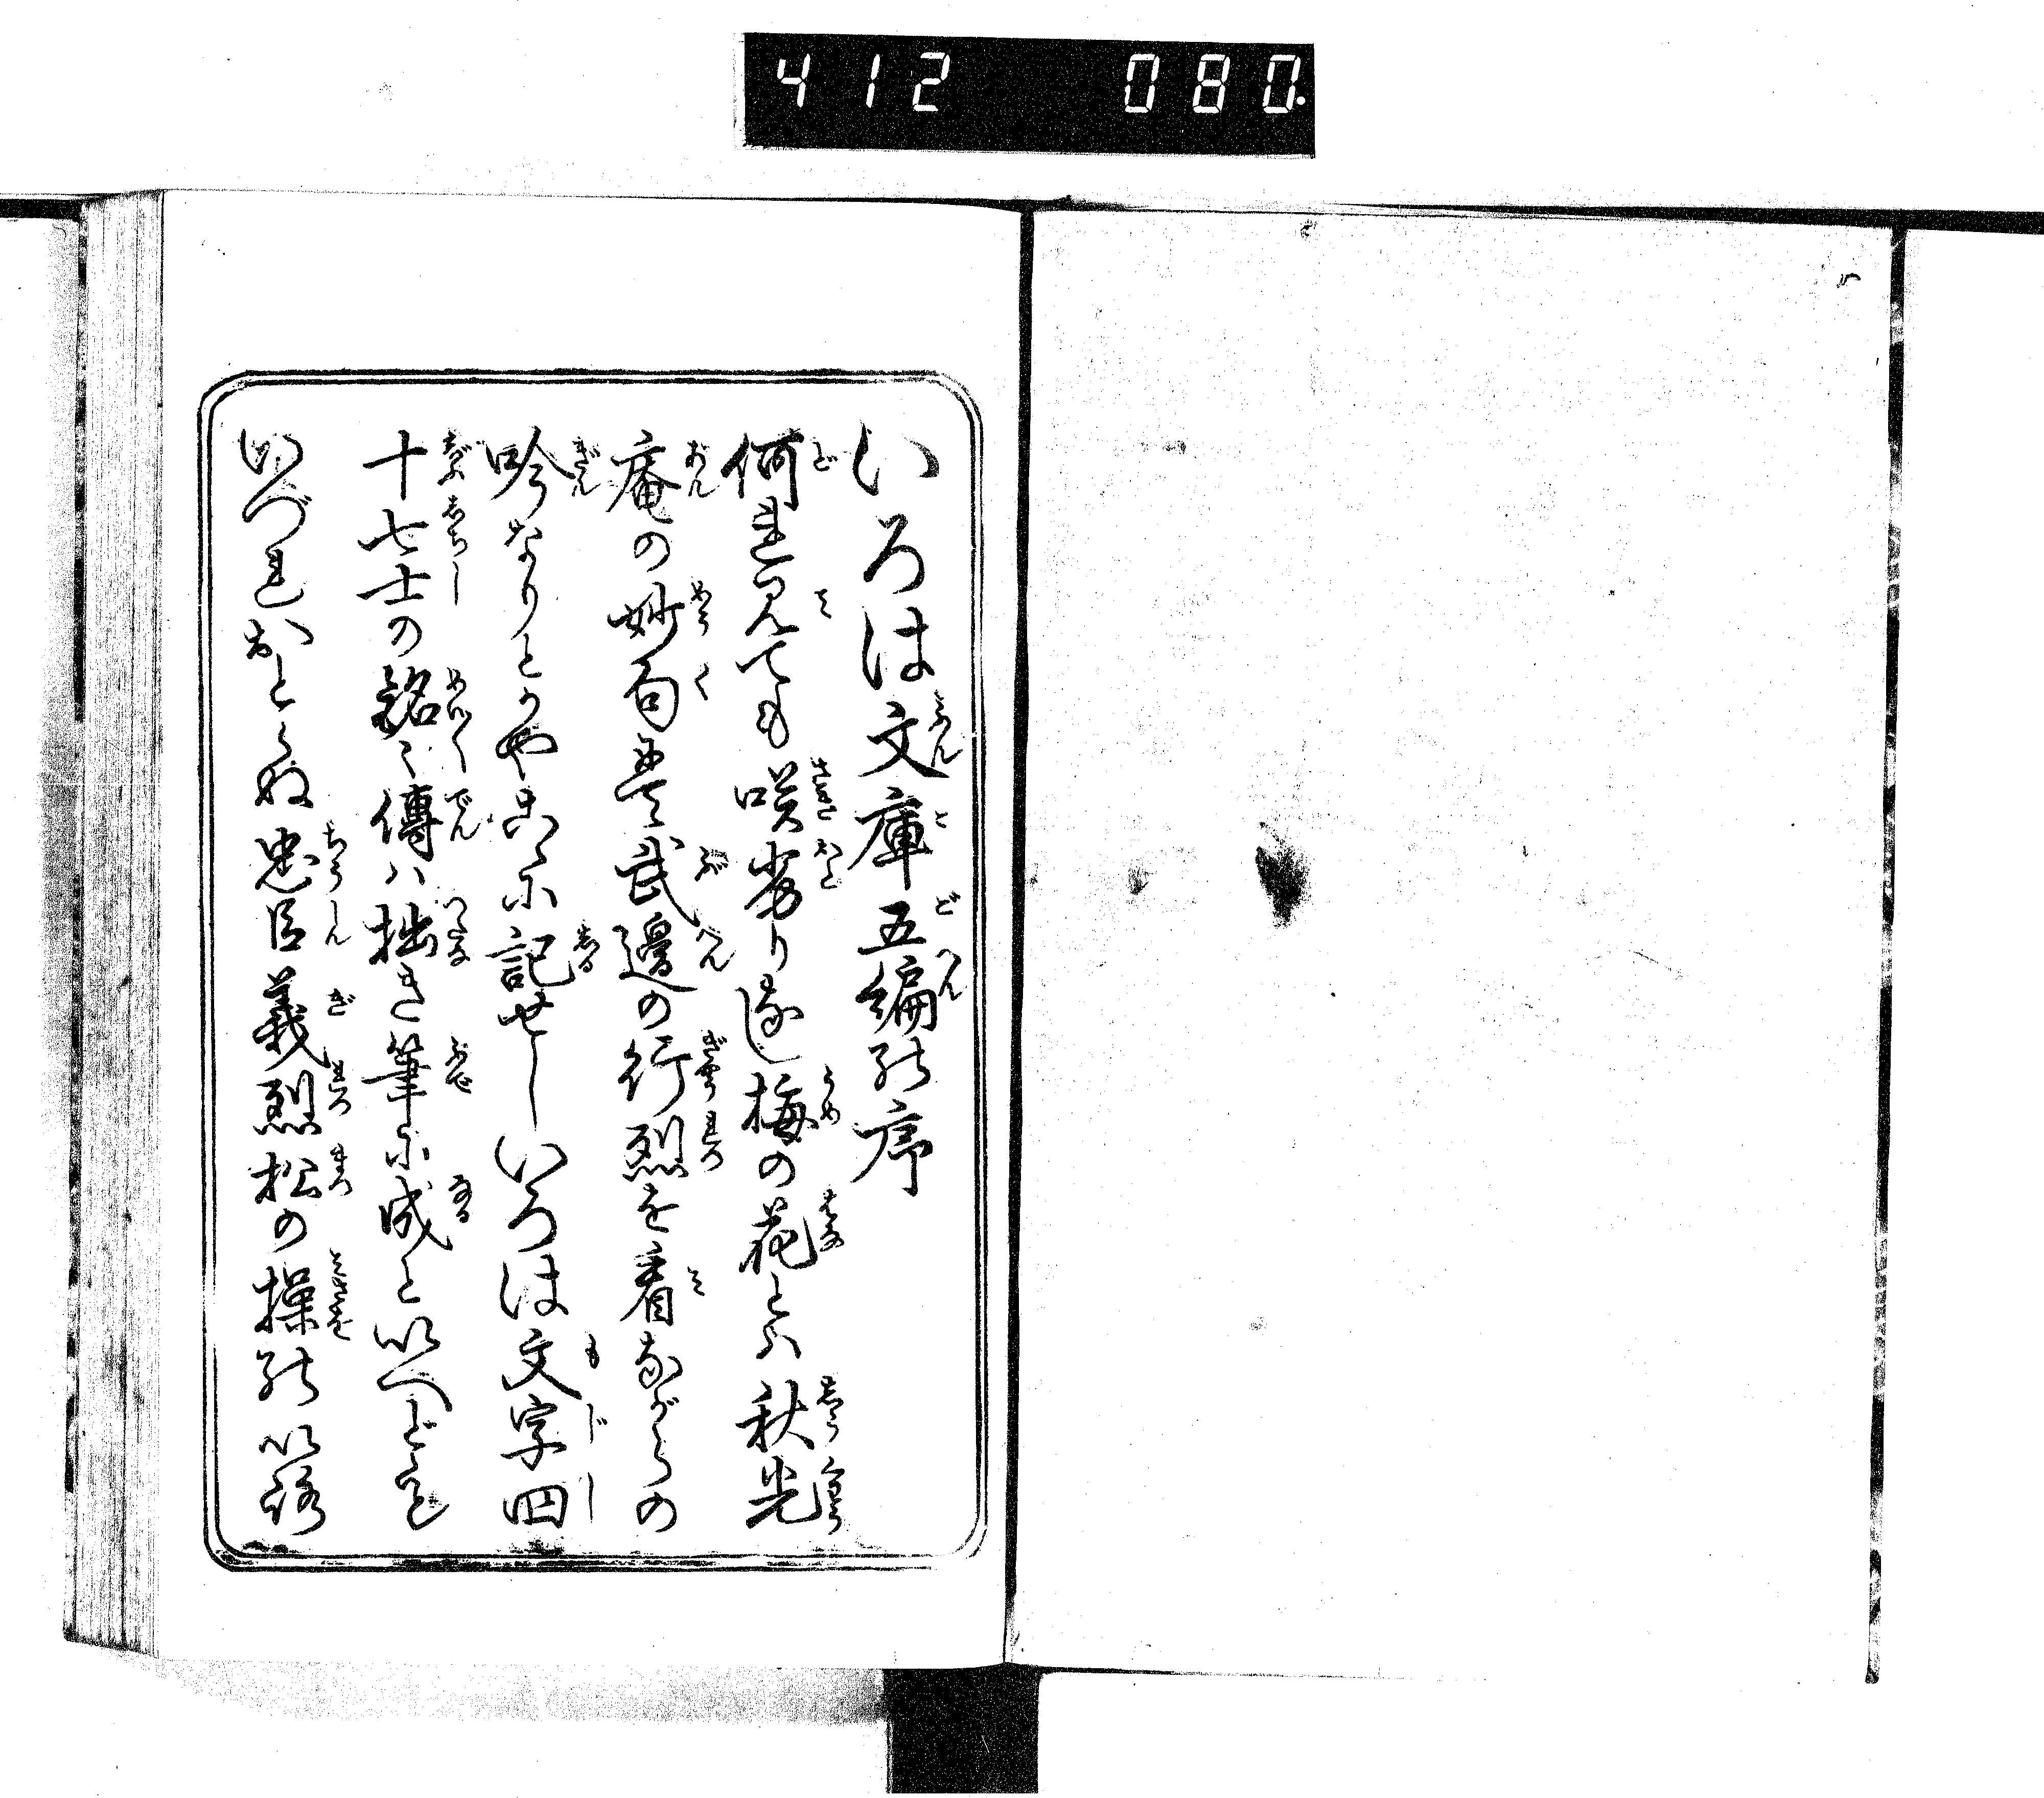 412 080.
いろは文庫五編の序
何れ見ても咲劣りなし梅の花とは秋光
庵の妙句是武邊の行烈を看ながらの
吟なりとかやこゝに記せしいろは文字四
十七士の銘々傳ハ拙き筆に成といへども
いづれおとらぬ忠臣義烈松の操の以路